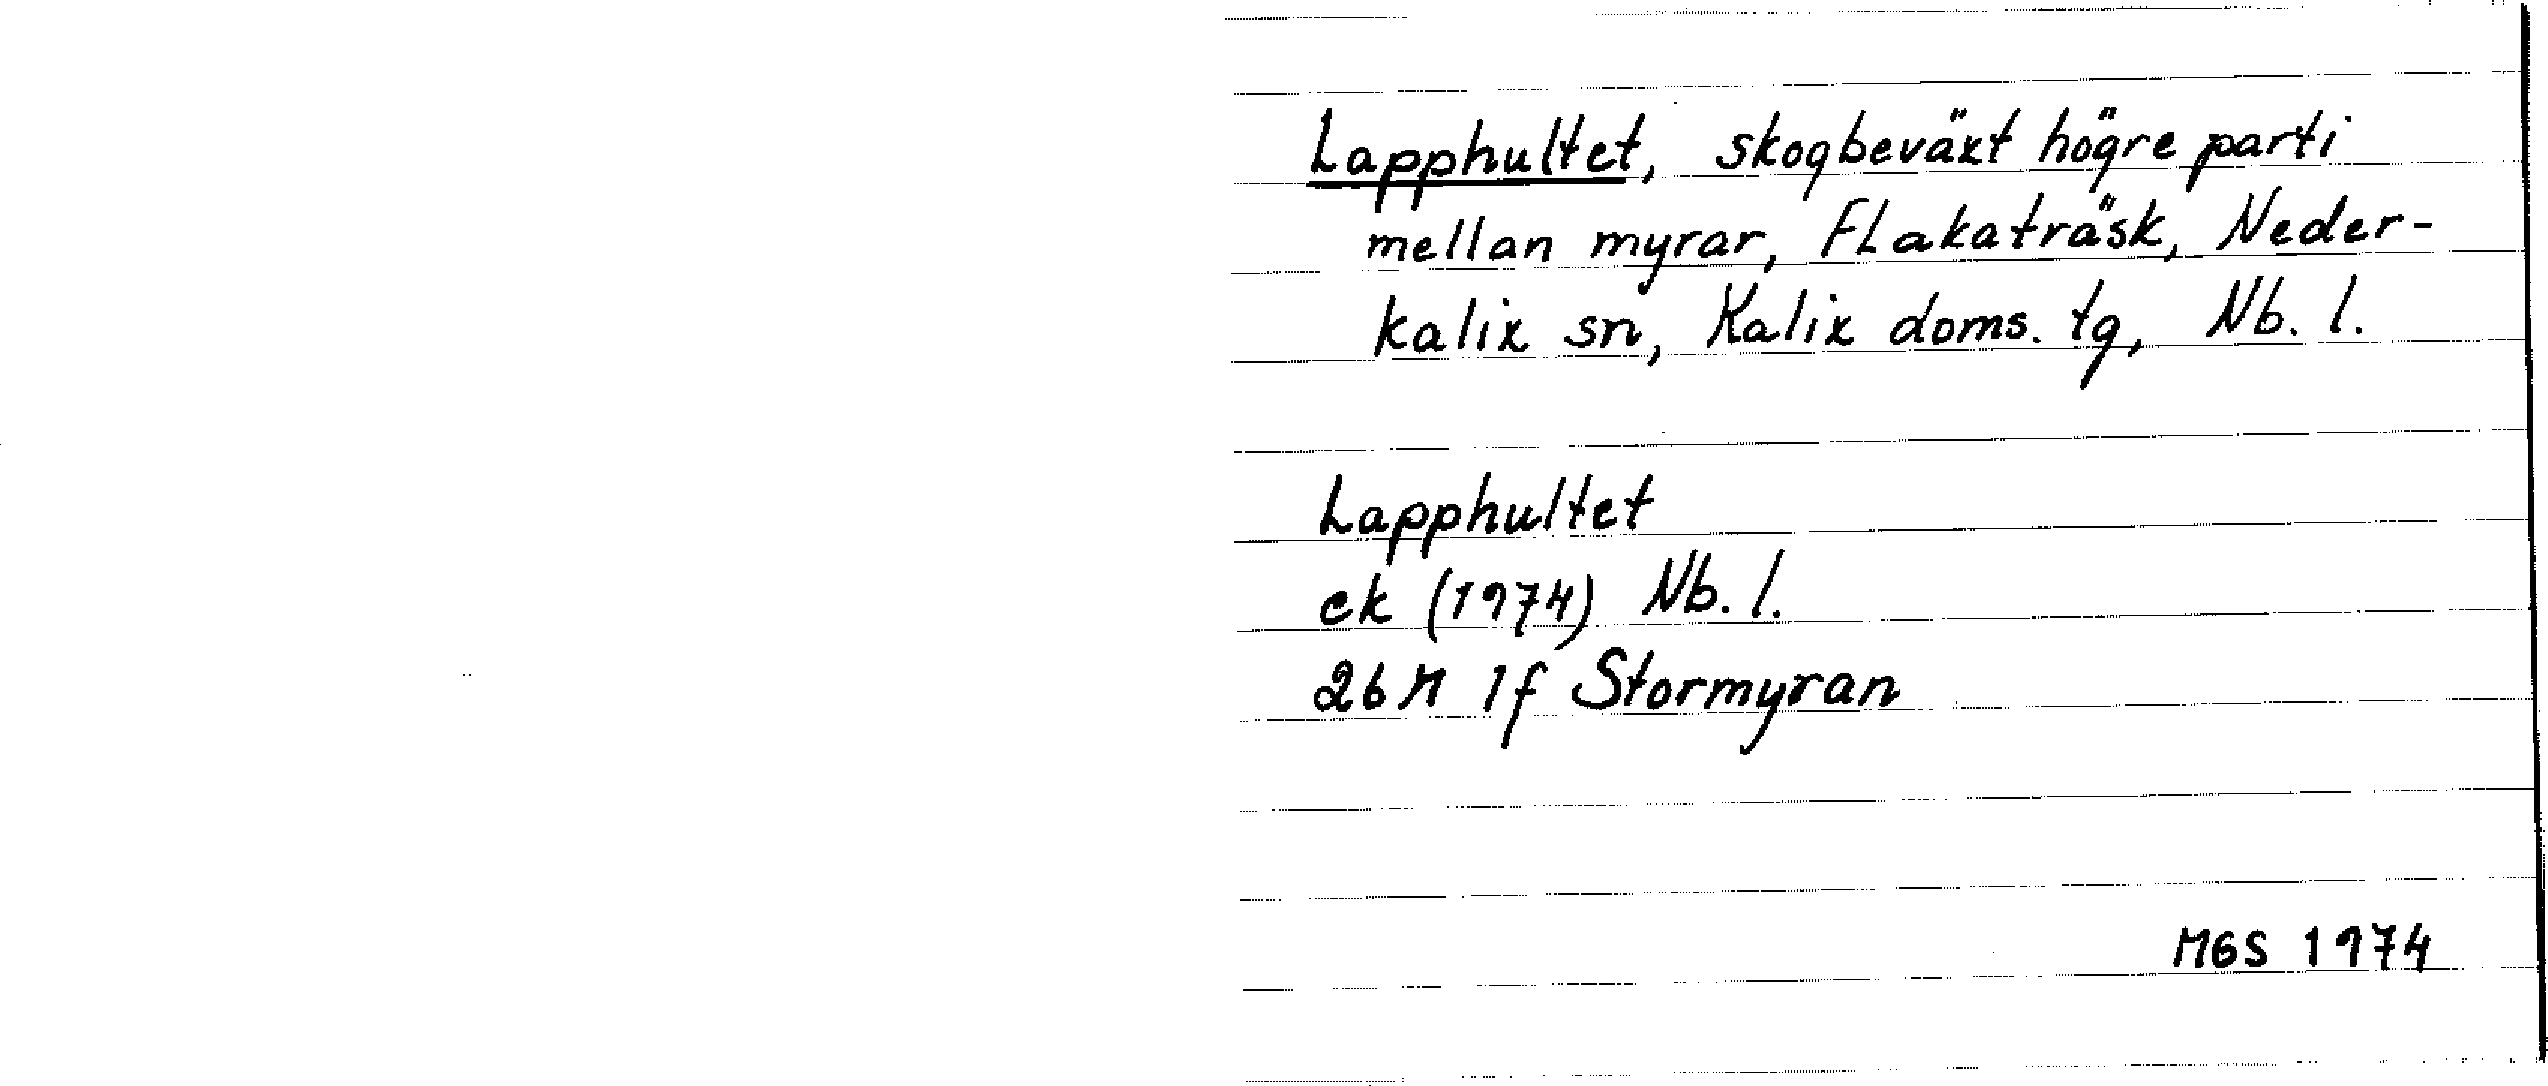 Lapphultet, skogbeväxt högre parti
mellan myrar, Flakaträsk, Neder-
kalix sn, Kalix doms. tg, Nb. l.
Lapphultet
ek (1974) Nb. l.
26 M 1f Stormyran
MGS 1974